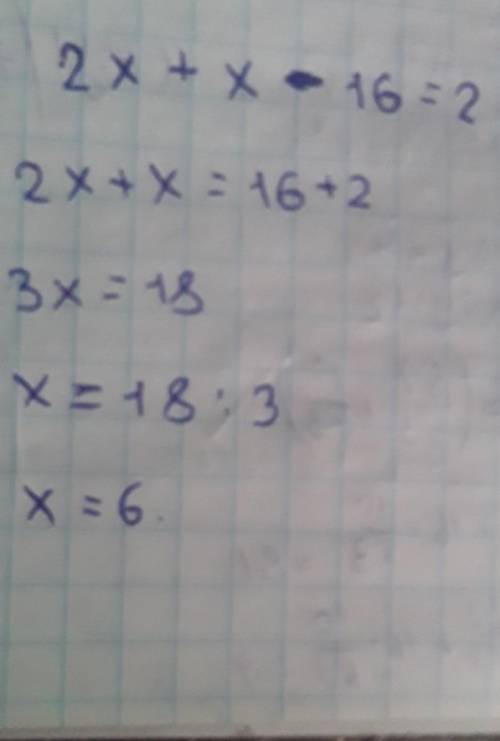 2x + x - 16 = 2
2x + x = 16 + 2
3x = 18
x = 18 : 3
x = 6.